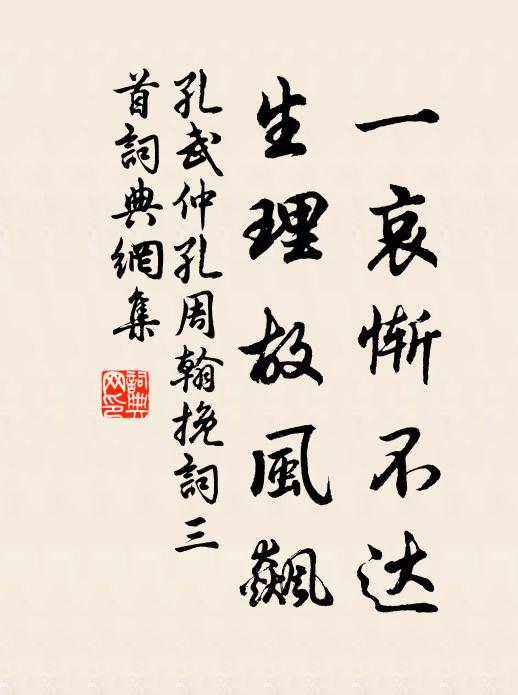 一哀慚不达
生理故風飆
孔武仲孔周翰挽詞三
首詞典網集
詞典
网印